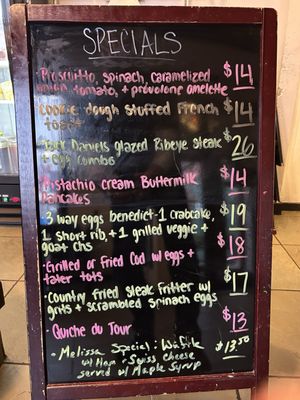 SPECIALS
• Prosciutto, spinach, caramelized $14
onion, tomato, + provolone omelette
Cookie dough stuffed French $14
toast
Jack Daniels glazed Ribeye steak $26
+ egg combo
Pistachio cream Buttermilk $14
Pancakes
• 3 way eggs benedict - 1 crabcake, $19
1 short rib, + 1 grilled veggie +
goat chs
• Grilled or Fried Cod w/ eggs + $18
tater tots
• Country fried steak Fritter w/ $17
grits + scrambled spinach eggs
Quiche du Tour $13
• Melissa Special: Waffle $13.50
w/ Ham + Swiss cheese
served w/ Maple Syrup